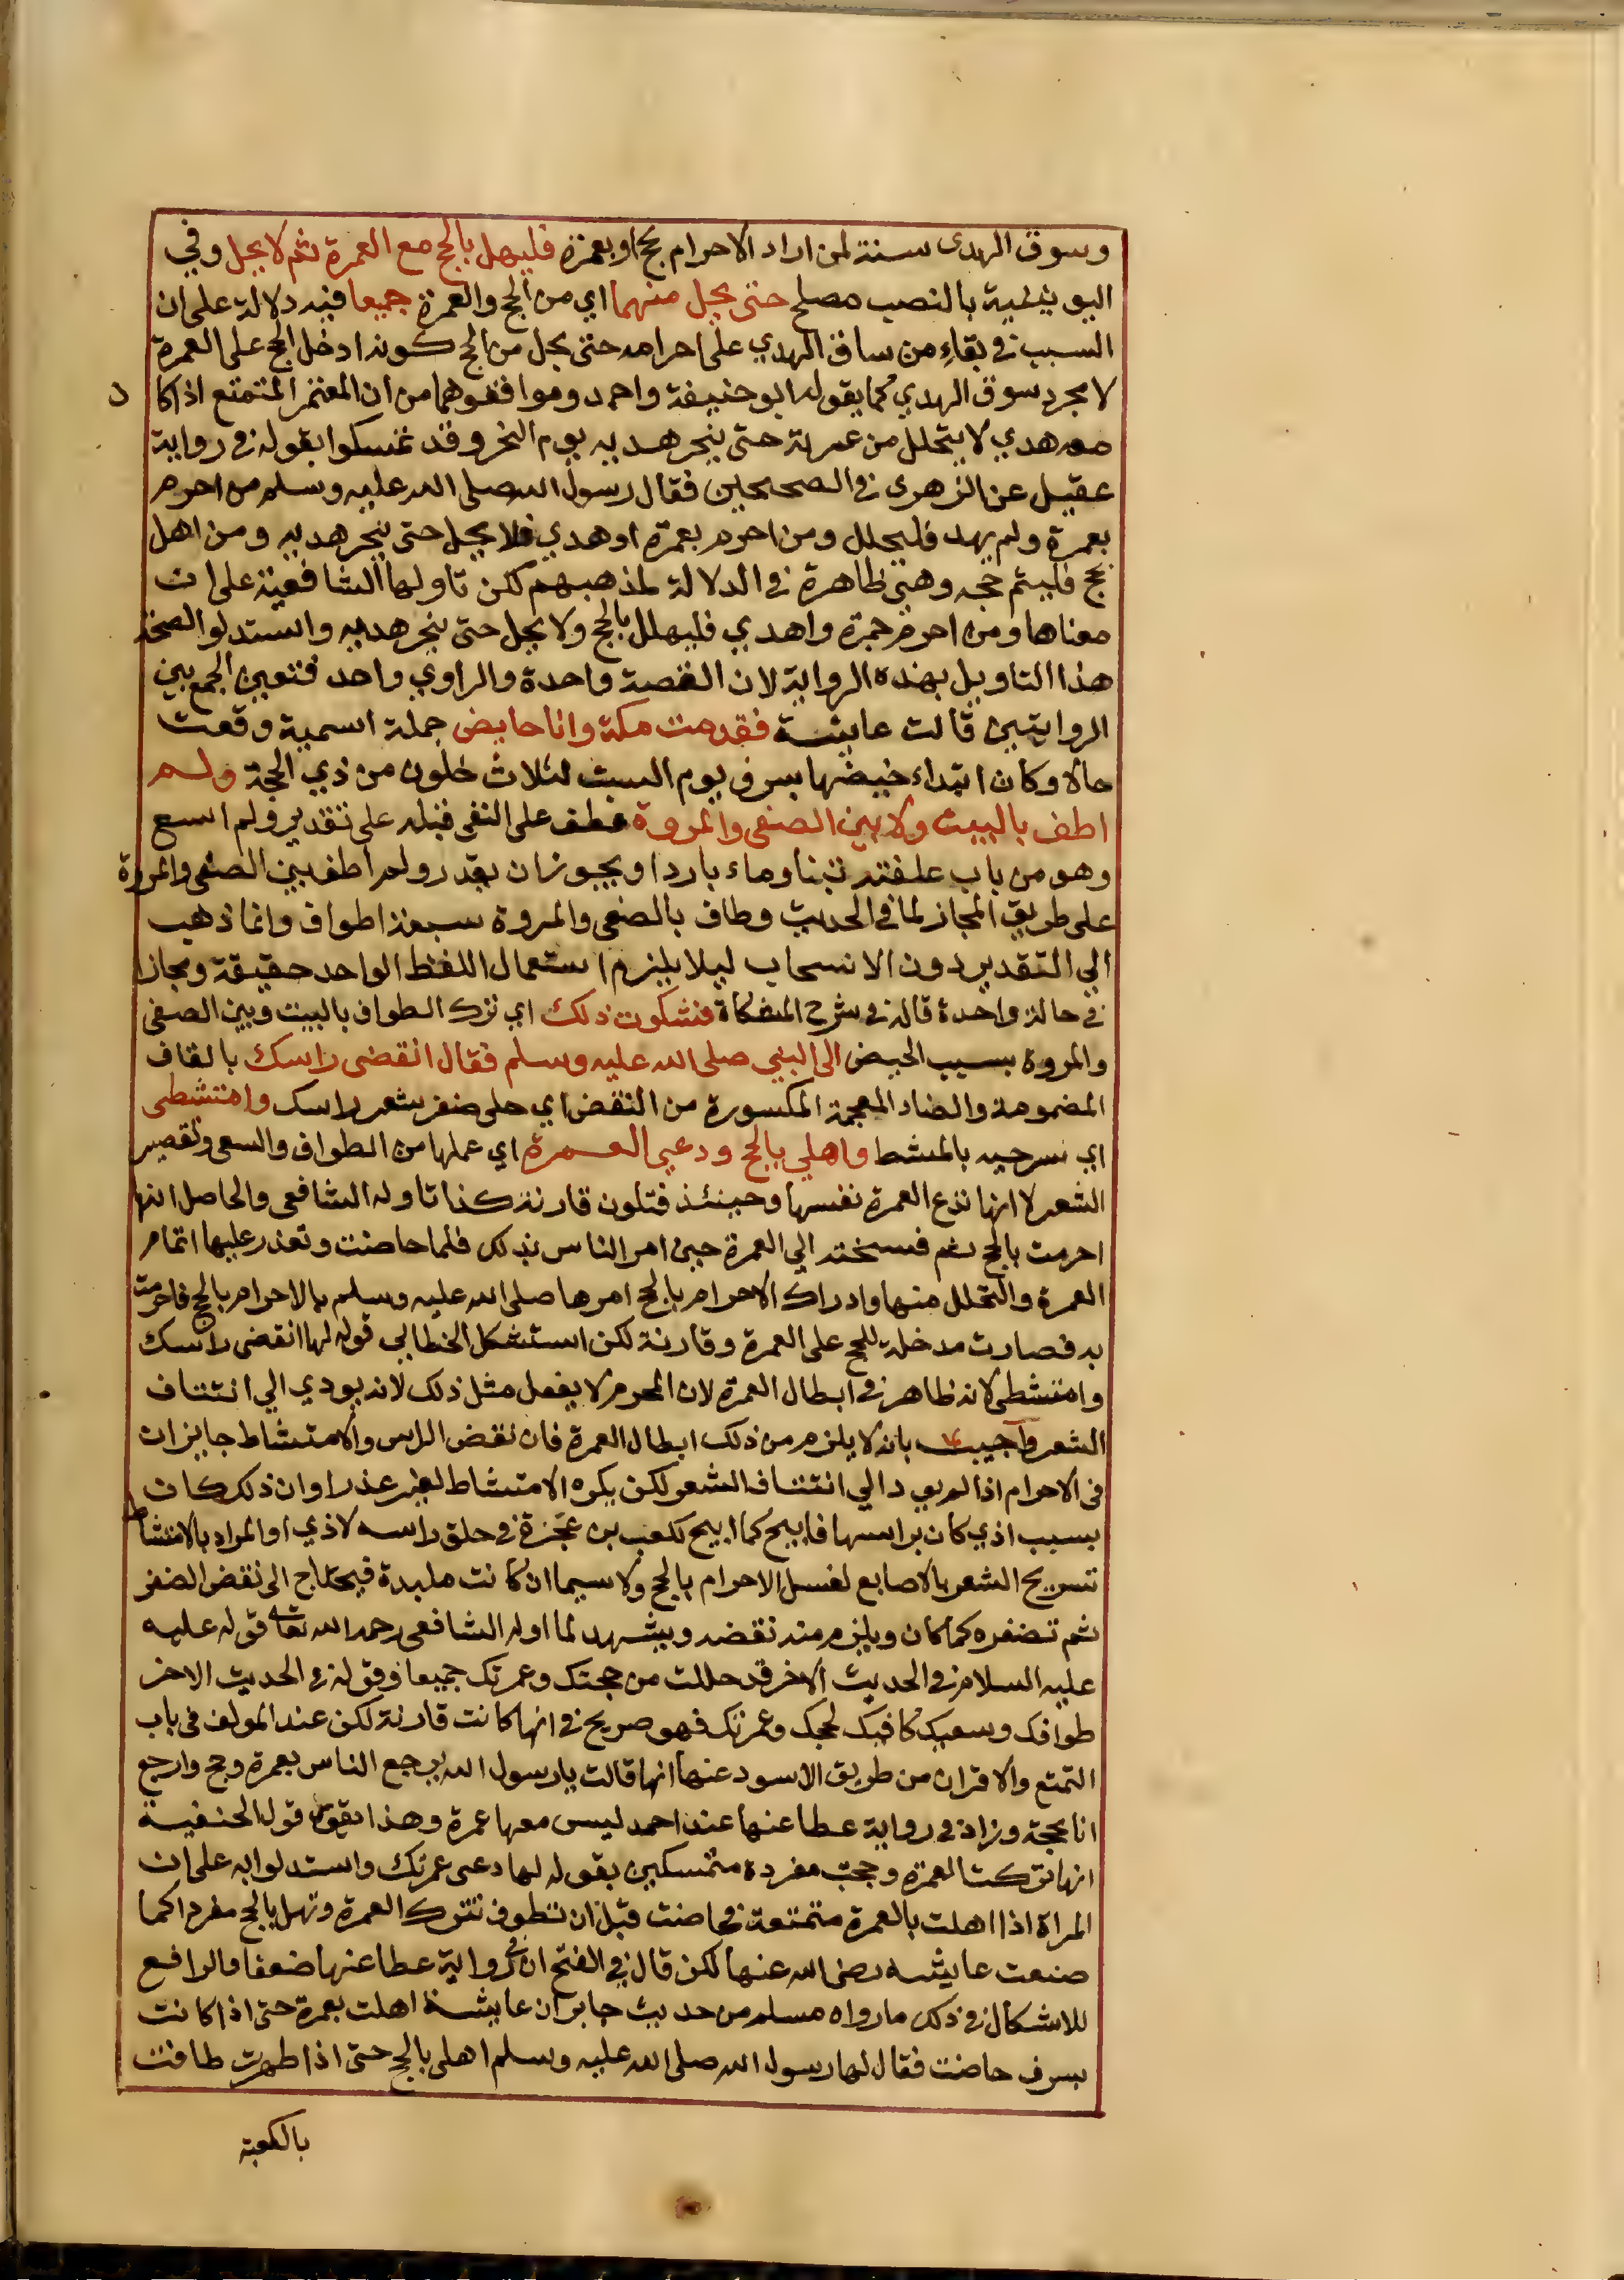 وسوق الهدى سنة لمن اراد الاحرام بحج او بعمرة فليهل بالحج مع العمرة ثم لا يحل وفي
اليونينية بالنصب مصلح حتى يحل منهما اي من الحج والعمرة جميعا فيه دلالة على ان
السبب في بقاء من ساق الهدي على احرامه حتى يحل من الحج كونه ادخل الحج على العمرة
لا مجرد سوق الهدي كما يقوله ابو حنيفة واحمد وموافقوهما من ان المعتمر المتمتع اذا كا ن
معه هدي لا يتحلل من عمرته حتى ينحر هديه يوم النحر وقد تمسكوا بقوله في رواية
عقيل عن الزهرى في الصحيحين فقال رسول الله صلى الله عليه وسلم من احرم
بعمرة ولم يهد فليحلل ومن احرم بعمرة اوهدي فلا يحل حتى ينحر هديه ومن اهل
بحج فليتم حجه وهي ظاهرة في الدلالة لمذهبهم لكن تاولها الشافعية على ان
معناها ومن احرم بعمرة واهدي فليهلل بالحج ولا يحل حتى ينحر هديه واستدلوا لصحة
هذا التاويل بهذه الرواية لان القصة واحدة والراوي واحد فتعين الجمع بين
الروايتين قالت عايشة فقدمت مكة وانا حايض جملة اسمية وقعت
حالا وكان ابتداء حيضها بسرف يوم السبت لثلاث خلون من ذي الحجة ولم
اطف بالبيت ولا بين الصفى والمروة عطف على النفى قبله على تقدير ولم اسع
وهو من باب علفته تبنا وماء باردا ويجوز ان يقدر ولم اطف بين الصفى والمروة
على طريق المجاز لما في الحديث وطاف بالصفى والمروة سبعة اطواف وانما ذهب
الي التقدير دون الانسحاب ليلا يلزم استعمال اللفظ الواحد حقيقة ومجازا
في حالة واحدة قاله في شرح المشكاة فشكوت ذلك اي ترك الطواف بالبيت وبين الصفى
والمروة بسبب الحيض الى النبي صلى الله عليه وسلم فقال انقضى راسك بالقاف
المضمومة والضاد المعجمة المكسورة من النقض اي حلى ضفر شعر راسك وامتشطى
اي سرحيه بالمشط واهلي بالحج ودعي العمرة اي عملها من الطواف والسعى وتقصير
الشعر لا انها تدع العمرة نفسها وحينئذ فتكون قارنة كذا تاوله الشافعى والحاصل انها
احرمت بالحج ثم فسخته الي العمرة حين امر الناس بذلك فلما حاضت وتعذر عليها اتمام
العمرة والتحلل منها وادراك الاحرام بالحج امرها صلى الله عليه وسلم بالاحرام بالحج فاحرمت
به فصارت مدخلة للحج على العمرة وقارنة لكن استشكل الخطابي قوله لها انقضى راسك
وامتشطى لانه ظاهر في ابطال العمرة لان المحرم لا يفعل مثل ذلك لانه يودي الي انتتاف
الشعر وآجيب بانه لا يلزم من ذلك ابطال العمرة فان نقض الراس والامتشاط جايزان
فى الاحرام اذا لم يود الي انتتاف الشعر لكن يكره الامتشاط لغير عذر او ان ذلك كان
بسبب اذي كان براسها فابيح كما ابيح لكعب بن عجرة في حلق راسه لاذي او المراد بالامتشاط
تسريح الشعر بالاصابع لغسل الاحرام بالحج ولا سيما ان كانت ملبدة فيحتاج الى نقض الضفر
ثم تضفره كما كان ويلزم منه نقضه ويشهد لما اوله الشافعى رحمه الله تعالى قوله عليه
عليه السلام في الحديث الاخر قد حللت من حجتك وعمرتك جميعا وقوله في الحديث الاخر
طوافك وسعيك كافيك لحجك وعمرتك فهو صريح في انها كانت قارنة لكن عند المولف فى باب
التمتع والاقران من طريق الاسود عنها انها قالت يا رسول الله يرجع الناس بعمرة وحج وارجع
انا بحجة وزاد في رواية عطا عنها عند احمد ليس معها عمرة وهذا يقوى قول الحنفية
انها تركت العمرة وحجت مفردة متمسكين بقوله لها دعى عمرتك واستدلوا به على ان
المراة اذا اهلت بالعمرة متمتعة فحاضت قبل ان تطوف تترك العمرة وتهل بالحج مفردا كما
صنعت عايشه رضى الله عنها لكن قال في الفتح ان في رواية عطا عنها ضعفا والرافع
للاشكال في ذلك ما رواه مسلم من حديث جابر ان عايشة اهلت بعمرة حتى اذا كانت
بسرف حاضت فقال لها رسول الله صلى الله عليه وسلم اهلى بالحج حتى اذا طهرت طافت
بالكعبة